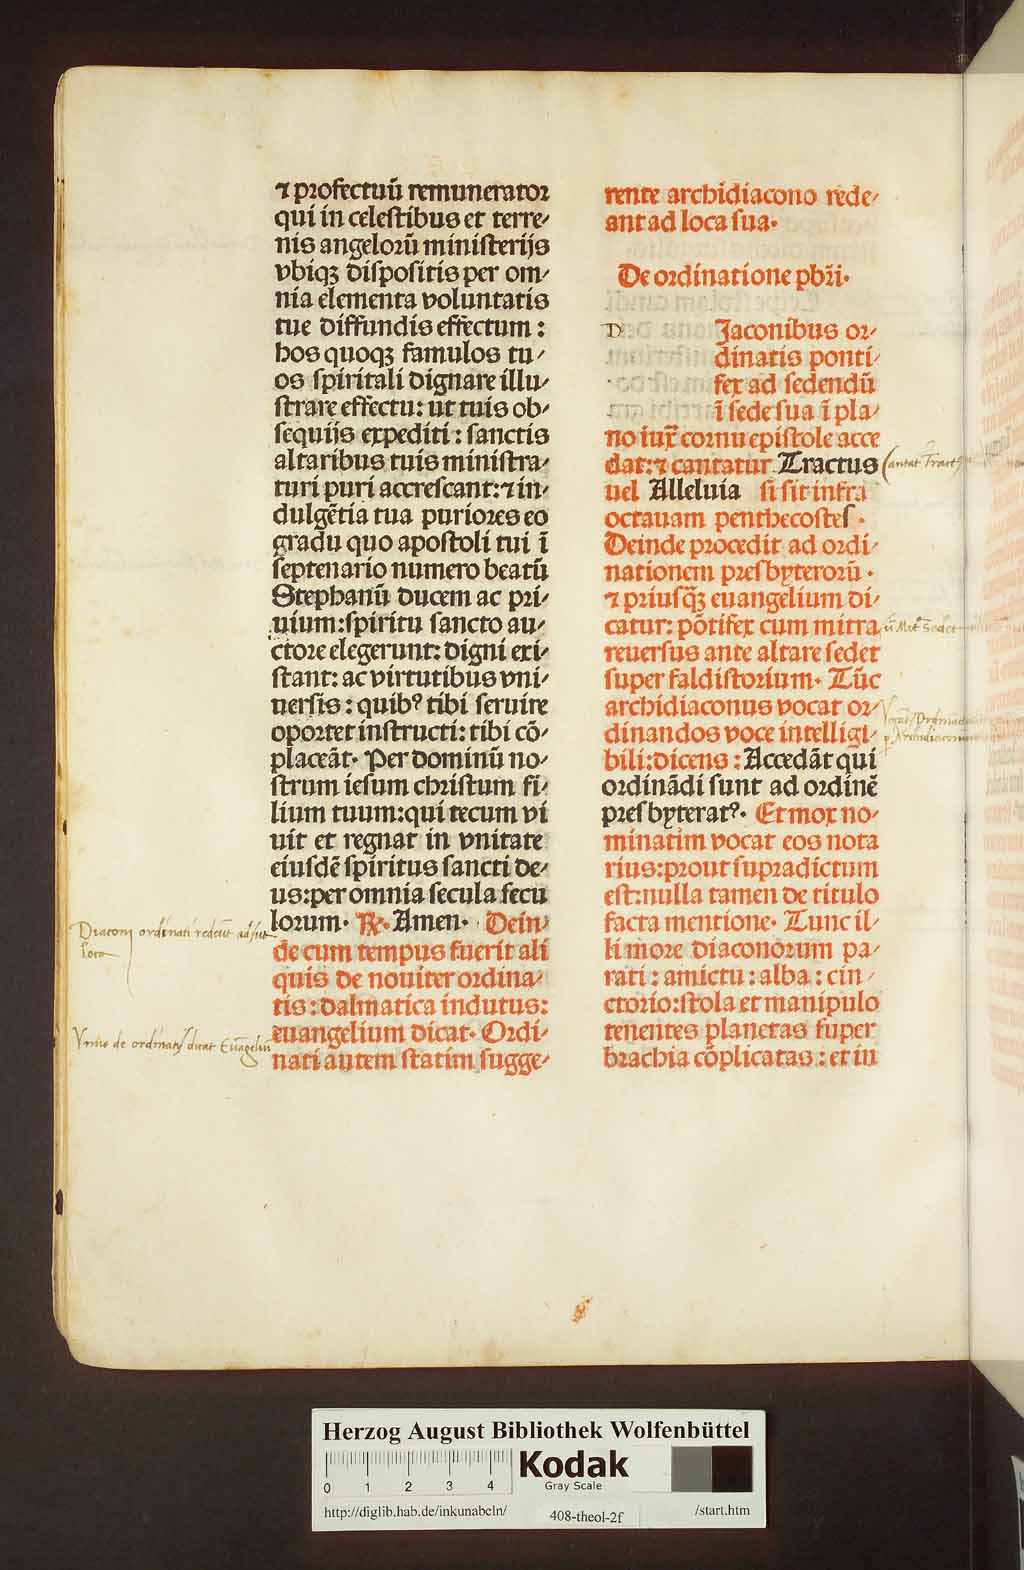 ⁊ profectuū remunerator
qui in celestibus et terre/
nis angelorū ministerijs
vbiqꝫ dispositis per om/
nia elementa voluntatis
tue diffundis effectum :
hos quoqꝫ famulos tu/
os spiritali dignare illu/
strare effectu: ut tuis ob/
sequijs expediti : sanctis
altaribus tuis ministra/
turi puri accrescant:⁊ in/
dulgētia tua puriores eo
gradu quo apostoli tui ī
septenario numero beatū
Stephanū ducem ac pri/
uium:spiritu sancto au/
ctore elegerunt: digni exi/
stant: ac virtutibus vni/
uersis : quibꝰ tibi seruire
oportet instructi: tibi cō/
placeāt· Per dominū no/
strum iesum christum fi/
lium tuum:qui tecum vi
uit et regnat in vnitate
eiusdē spiritus sancti de/
us:per omnia secula secu
lorum· ℟· Amen· Dein/
de cum tempus fuerit ali
quis de nouiter ordina/
tis : dalmatica indutus:
euangelium dicat· Ordi/
nati autem statim sugge/
Diaconi ordinati redeūt ad sua
loca
Vnus de ordinatis dicat Euāgeliū
rente archidiacono rede/
ant ad loca sua·
De ordinatione pbr̄i·
D Jaconibus or/
dinatis ponti/
fex ad sedendū
ī sede sua ī pla/
no iuxͣ cornu epistole acce
dat:⁊ cantatur Tractus
uel Alleluia si sit infra
octauam penthecostes ·
Deinde procedit ad ordi/
nationem presbyterorū ·
⁊ priusqꝫ̄ euangelium di/
catur: pōtifex cum mitra
reuersus ante altare sedet
super faldistorium· Tūc
archidiaconus vocat or/
dinandos voce intelligi/
bili:dicens : Accedāt qui
ordinādi sunt ad ordinē
presbyteratꝰ· Et mox no/
minatim vocat eos nota
rius:prout supradictum
est:nulla tamen de titulo
facta mentione· Tunc il/
li more diaconorum pa/
rati : amictu : alba : cin/
ctorio:stola et manipulo
tenentes planetas super
brachia cōplicatas : et in
Cantat Tractꝰ
Sedet
Herzog August Bibliothek Wolfenbüttel
0 1 2 3 4
Kodak
Gray Scale
http://diglib.hab.de/inkunabeln/ 408-theol-2f /start.htm